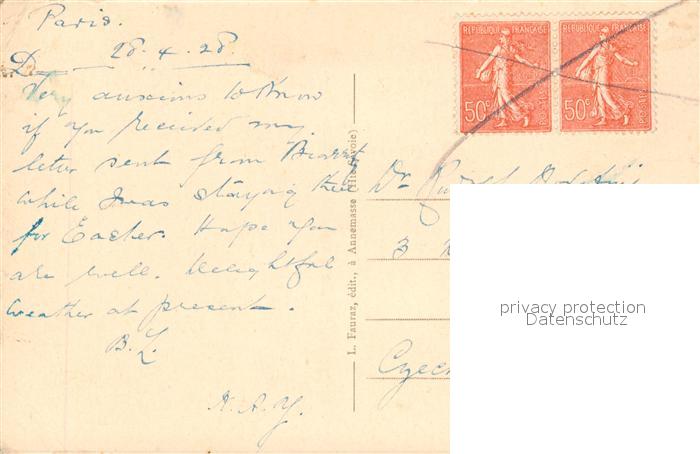 Paris.
D 28.4.28.
Very anxious to know
if you received my
letter sent from Biarritz
while I was staying there
for Easter. Hope you
are well. Delightful
weather at present.
B. L.
N. A. Y.
L. Fauraz, édit., à Annemasse (Hte-Savoie)
REPUBLIQUE FRANÇAISE
50c
POSTES
REPUBLIQUE FRANÇAISE
50c
POSTES
Dr
3
Czech
privacy protection
Datenschutz